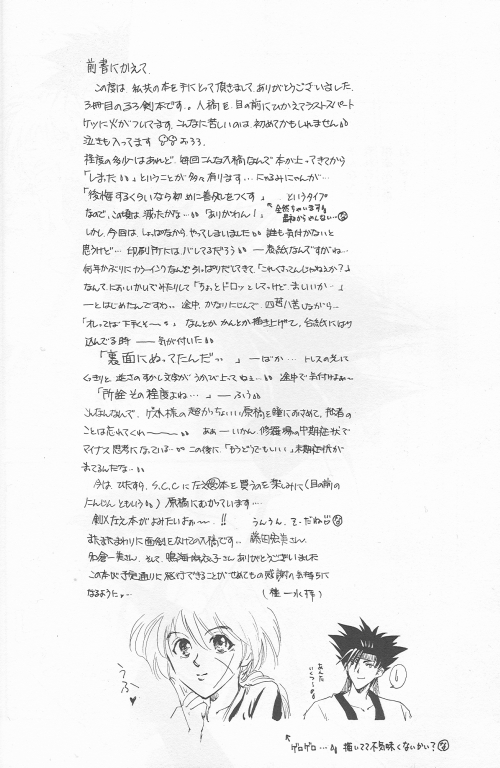 前書にかえて
この度は、私共の本を手にとって頂きまして、ありがとうございました。
3冊目のるろ剣本です。入稿を目の前にひかえてラストスパート
ケツに火がついてます。こんなに苦しいのは、初めてかもしれません
泣きも入ってます おろろ
程度の多少はあれど、毎回こんな入稿なんで 本が上ってきてから
「しまった」ということが多々有ります…にゃるみにゃんが…
「後悔するくらいなら初めに善処をつくす」 というタイプ
なので、この頃は、減ったかな…「ありがわん！」
全然ちゃいます
最初からやんない…
しかし、今回は、しょっぱなから、やってしまいました 誰も気付かないと
思うけど…印刷所には、バレてるだろう — 表紙なんですがね…
何年かぶりにカラーインクなんぞ引っぱりだしてきて「これくさってんじゃねェか？」
なんて、においかいでみたりして「ちょっとドロッとしてっけど、まいいかー」
—とはじめたんですわ 途中、かなりにじんで、四苦八苦しながら…
「オレってば下手くそ〜」 なんとかかんとか描き上げて、台紙にはり
込んでる時 — 気が付いた
「裏面にぬってたんだっ」—ばか…トレスの
くっきりと、逆さのすかし文字が、うかび上って 途中で気付けよぉ〜
「所詮その程度よね…」— ふう
こんなんなんで、ゲスト様の超かっちょいい原稿を瞳におさめて、拙者の
ことは忘れてくれ〜 ああーいかん、修羅場の中期症状で
マイナス思考になっている…この後に、「もうどうでもいい」末期症状が
まってるんだな…
今は、ひたすら、S.C.Cに左之本を買うのを楽しみに(目の前の
にんじんともいう) 原稿にむかっています…
剣×左之本がよみたいよぉ〜!! うんうん、て・だね
またまたまわりに面倒をかけての入稿です…藤田
名倉一 さん、そして、鳴海 子さんありがとうございました
この本が予定通りに発行できることがせめてもの感謝の気持ちに
なるように、
うふ♥
あんた
いくつ…
ゲロゲロ… 描いてて不気味くないかい？